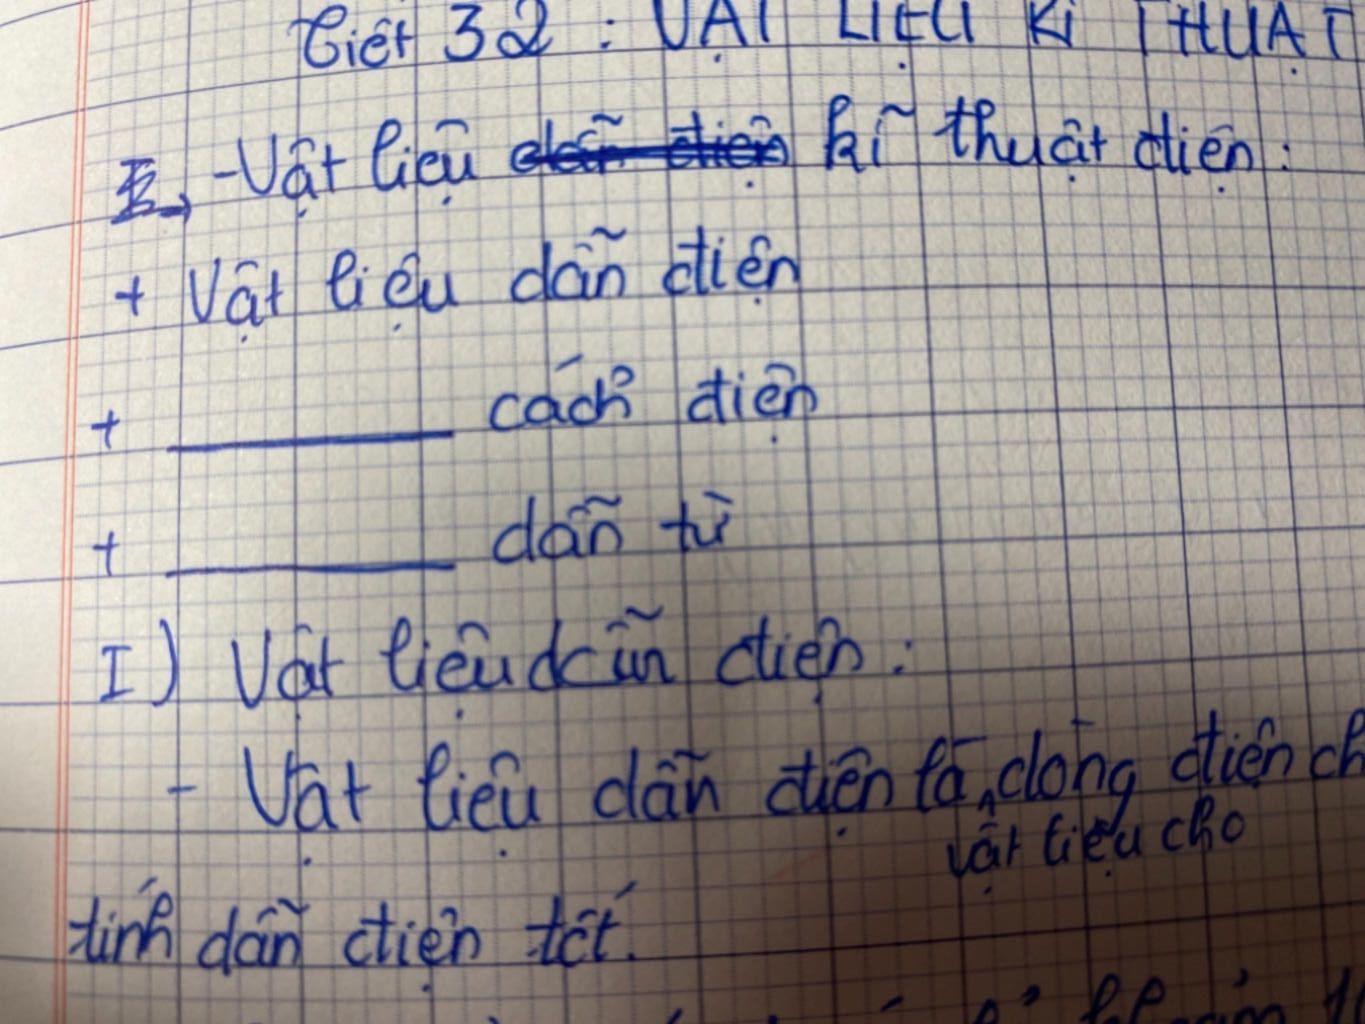 Tiết 32 : VẬT LIỆU KĨ THUẬT
- Vật liệu kĩ thuật điện :
+ Vật liệu dẫn điện
+ ______ cách điện
+ ______ dẫn từ
I) Vật liệu dẫn điện :
- Vật liệu dẫn điện là dòng điện ch
vật liệu cho
tính dẫn điện tốt.